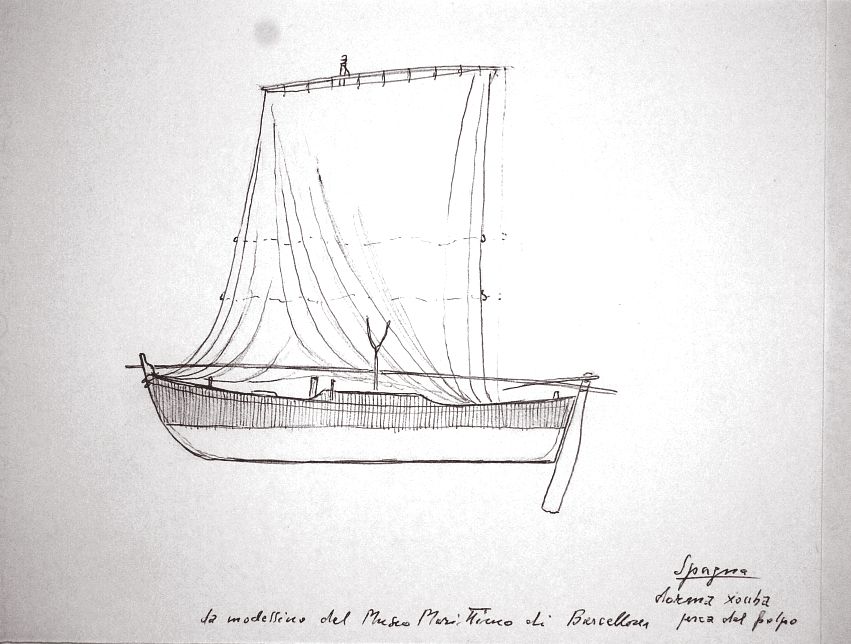 Spagna
dorna xouba
da modellino del Museo Marittimo di Barcellona pesca del polpo